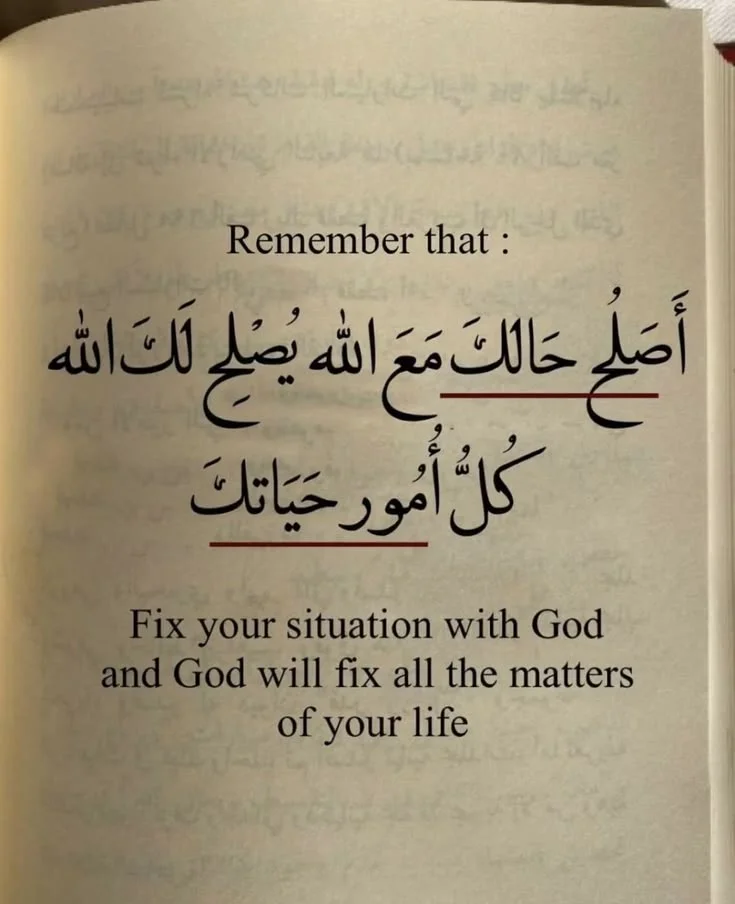 Remember that :
أَصَلُح حَالكَ مَعَ الله يُصْلِح لَكَ الله
كُلُّ أُمُور حَيَاتكَ
Fix your situation with God
and God will fix all the matters
of your life